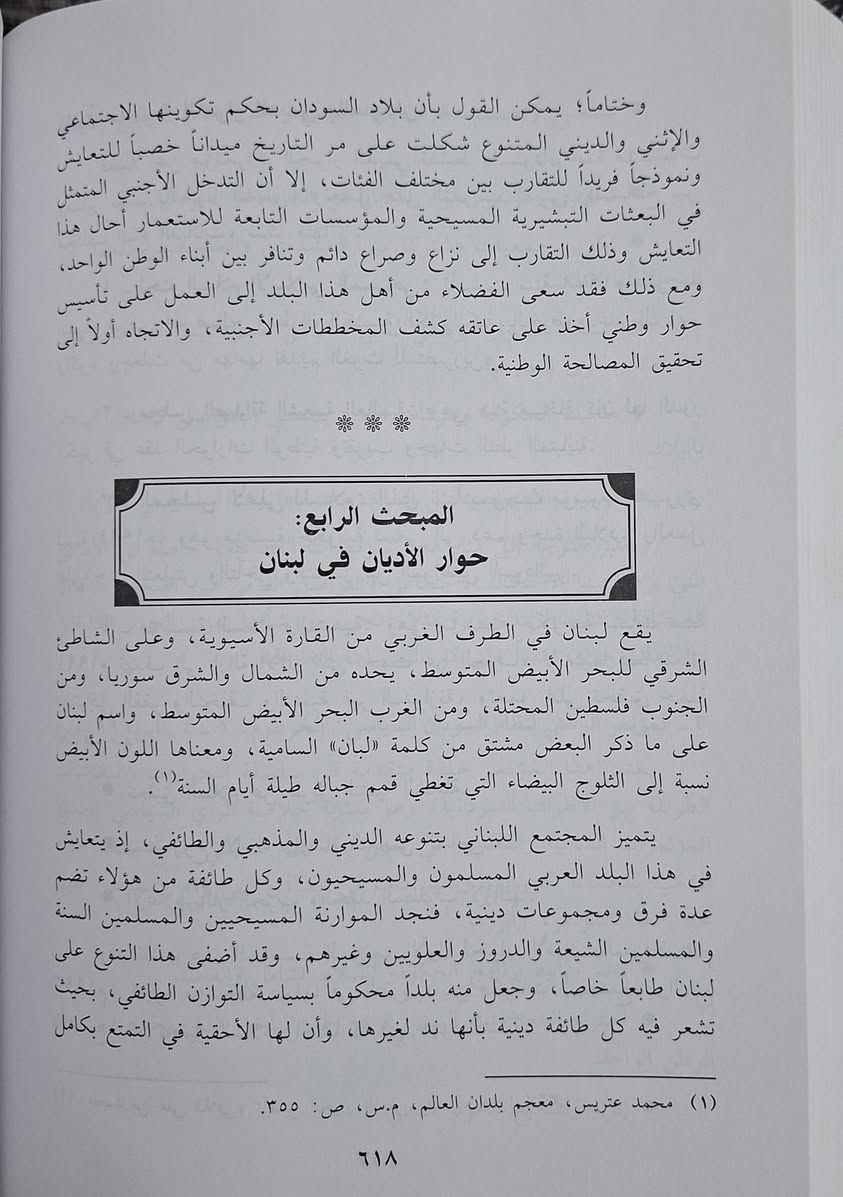 وختاماً؛ يمكن القول بأن بلاد السودان بحكم تكوينها الاجتماعي
والإثني والديني المتنوع شكلت على مر التاريخ ميداناً خصباً للتعايش
ونموذجاً فريداً للتقارب بين مختلف الفئات، إلا أن التدخل الأجنبي المتمثل
في البعثات التبشيرية المسيحية والمؤسسات التابعة للاستعمار أحال هذا
التعايش وذلك التقارب إلى نزاع وصراع دائم وتنافر بين أبناء الوطن الواحد،
ومع ذلك فقد سعى الفضلاء من أهل هذا البلد إلى العمل على تأسيس
حوار وطني أخذ على عاتقه كشف المخططات الأجنبية، والاتجاه أولاً إلى
تحقيق المصالحة الوطنية.
المبحث الرابع:
حوار الأديان في لبنان
يقع لبنان في الطرف الغربي من القارة الأسيوية، وعلى الشاطئ
الشرقي للبحر الأبيض المتوسط، يحده من الشمال والشرق سوريا، ومن
الجنوب فلسطين المحتلة، ومن الغرب البحر الأبيض المتوسط، واسم لبنان
على ما ذكر البعض مشتق من كلمة «لبان» السامية، ومعناها اللون الأبيض
نسبة إلى الثلوج البيضاء التي تغطي قمم جباله طيلة أيام السنة(١).
يتميز المجتمع اللبناني بتنوعه الديني والمذهبي والطائفي، إذ يتعايش
في هذا البلد العربي المسلمون والمسيحيون، وكل طائفة من هؤلاء تضم
عدة فرق ومجموعات دينية، فنجد الموارنة المسيحيين والمسلمين السنة
والمسلمين الشيعة والدروز والعلويين وغيرهم، وقد أضفى هذا التنوع على
لبنان طابعاً خاصاً، وجعل منه بلداً محكوماً بسياسة التوازن الطائفي، بحيث
تشعر فيه كل طائفة دينية بأنها ند لغيرها، وأن لها الأحقية في التمتع بكامل
(١) محمد عتريس، معجم بلدان العالم، م.س، ص: ٣٥٥.
٦١٨